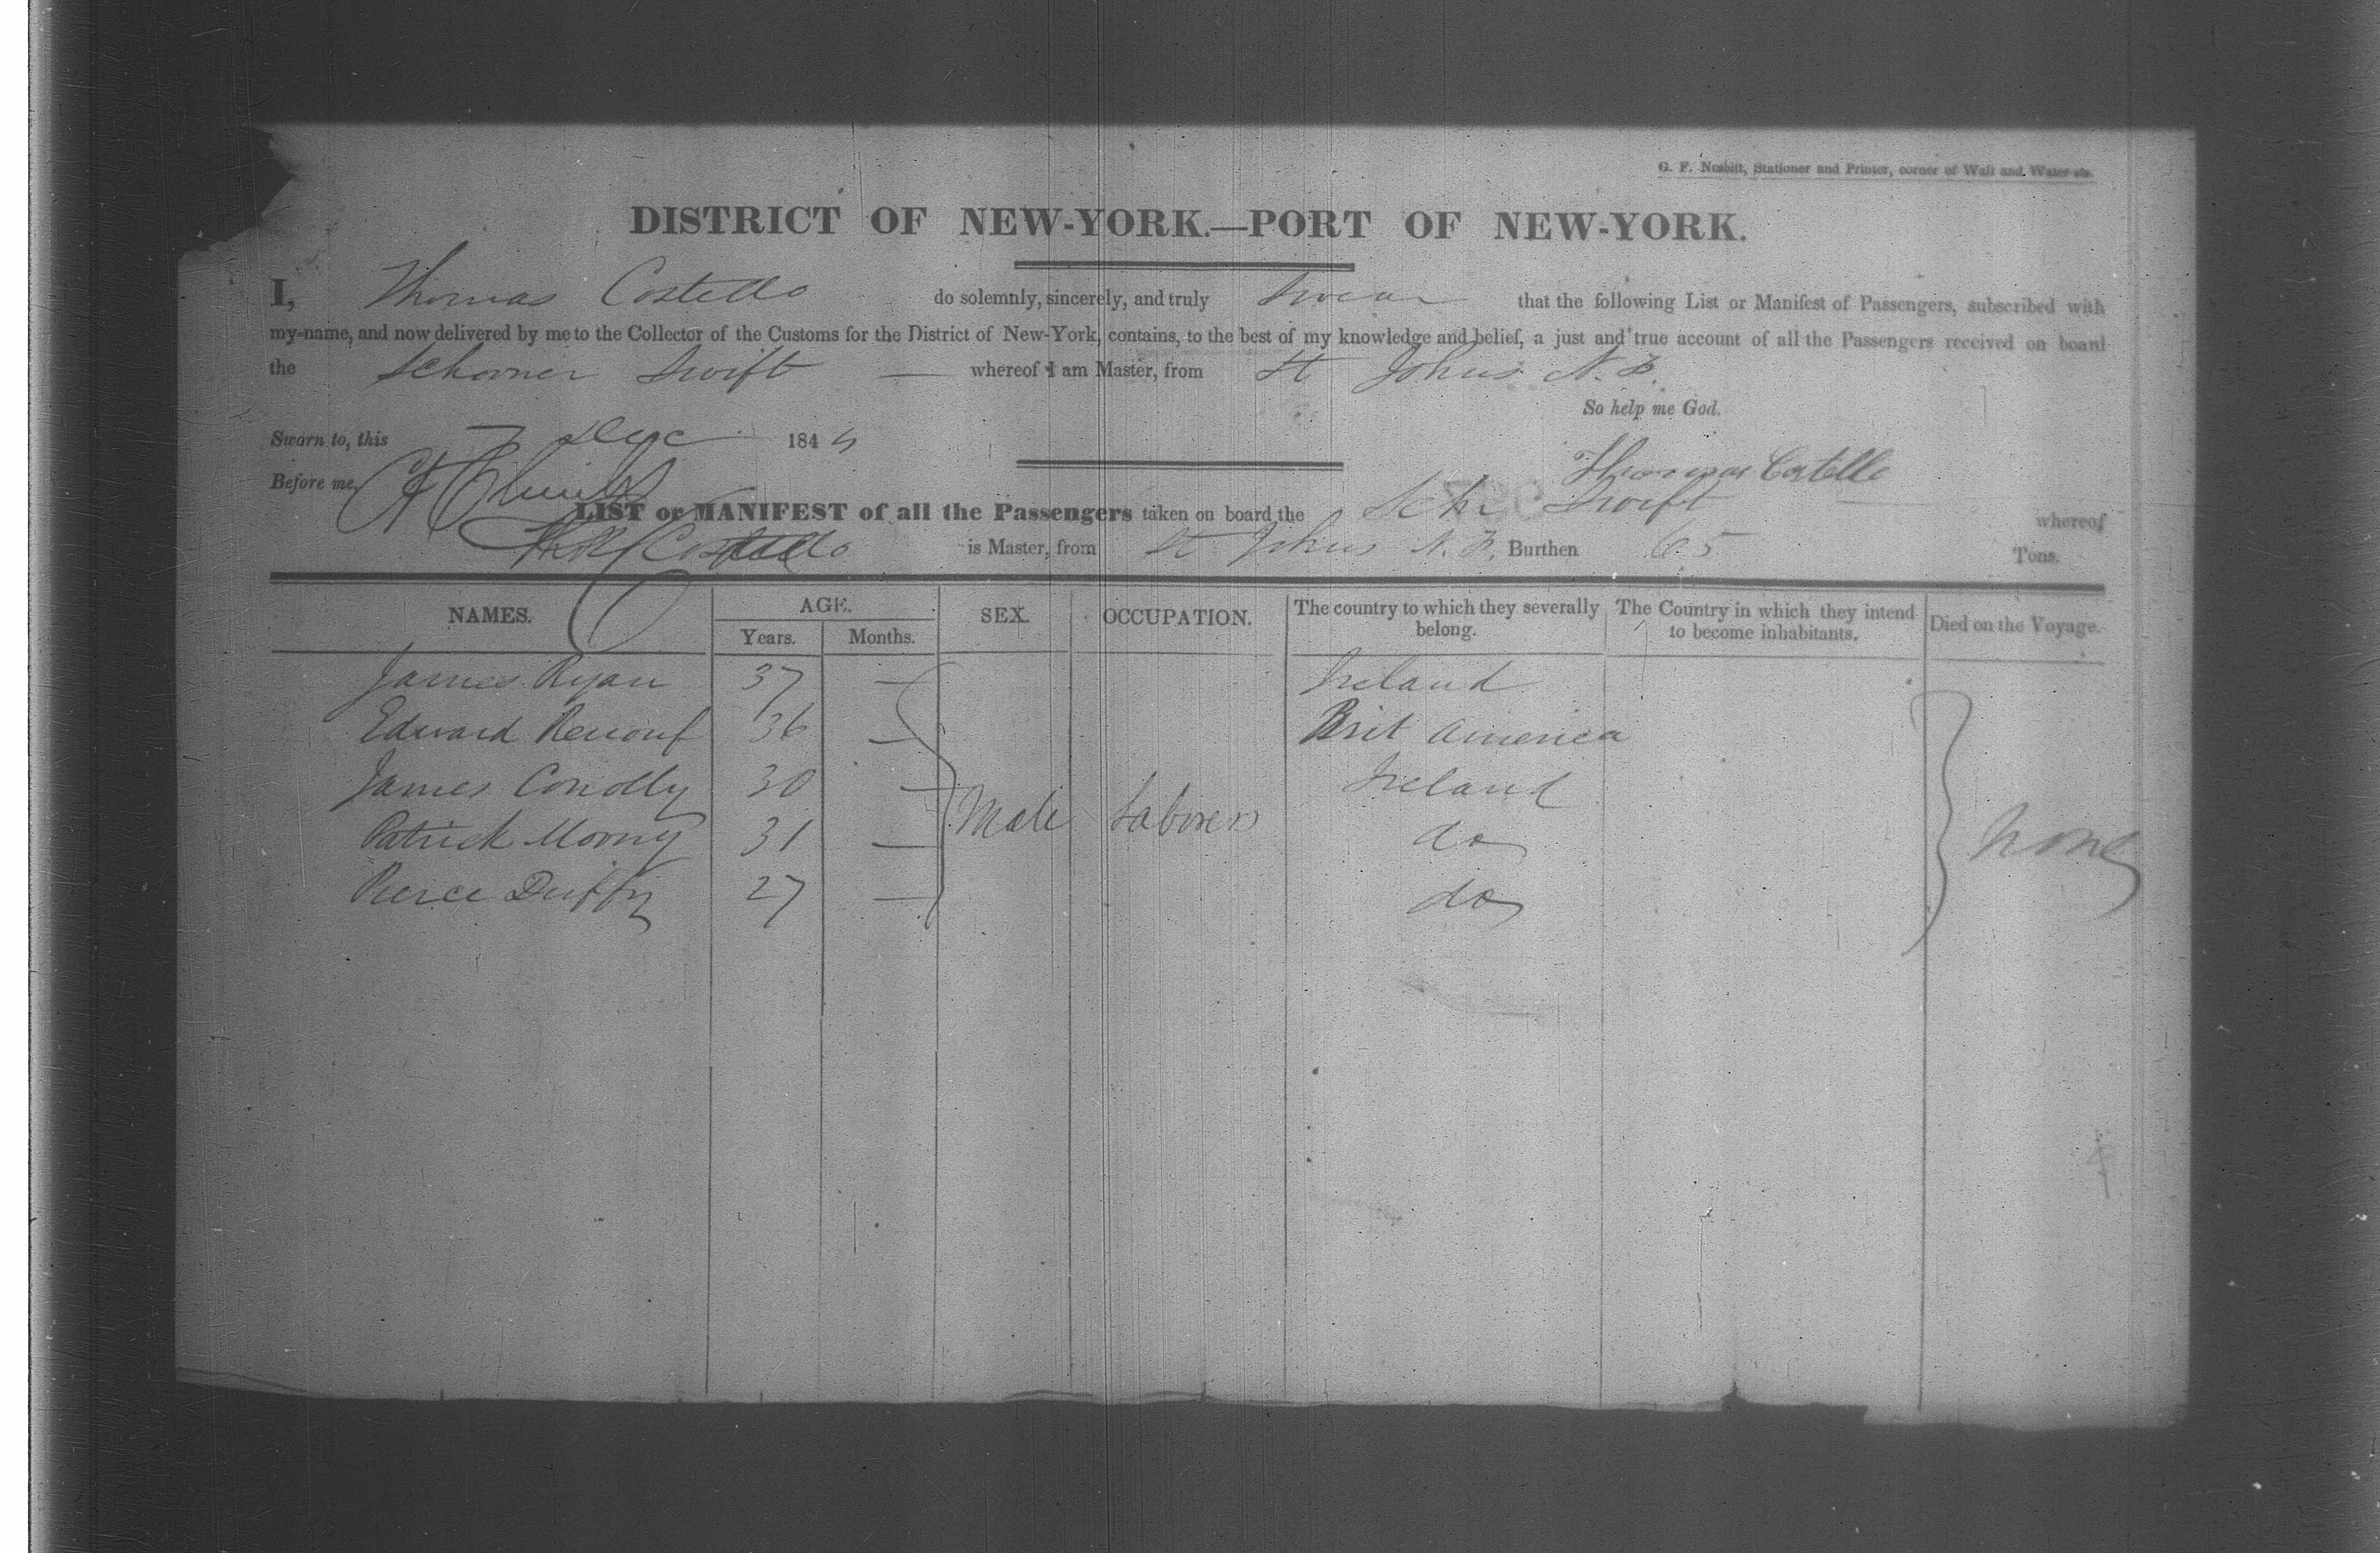 G. F. Nesbitt, Stationer and Printer, corner of Wall and Water sts.
DISTRICT OF NEW-YORK.—PORT OF NEW-YORK.
I, Thomas Costello do solemnly, sincerely, and truly swear that the following List or Manifest of Passengers, subscribed with
my name, and now delivered by me to the Collector of the Customs for the District of New-York, contains, to the best of my knowledge and belief, a just and true account of all the Passengers received on board
the Schooner Swift — whereof I am Master, from St Johns N.
So help me God.
Sworn to, this 7 184
Thomas Costello
Before me,
LIST or MANIFEST of all the Passengers taken on board the Schr Swift whereof
Costello is Master, from St Johns N. Burthen 65 Tons.
NAMES. AGE. SEX. OCCUPATION. The country to which they severally belong. The Country in which they intend to become inhabitants. Died on the Voyage.
Years. Months.
James Ryan 37 — Ireland
Edward Renouf 36 — Brit America
James Conolly 30 — Male Laborers Ireland none
Patrick 31 — do
Pierce Duffy 27 — do